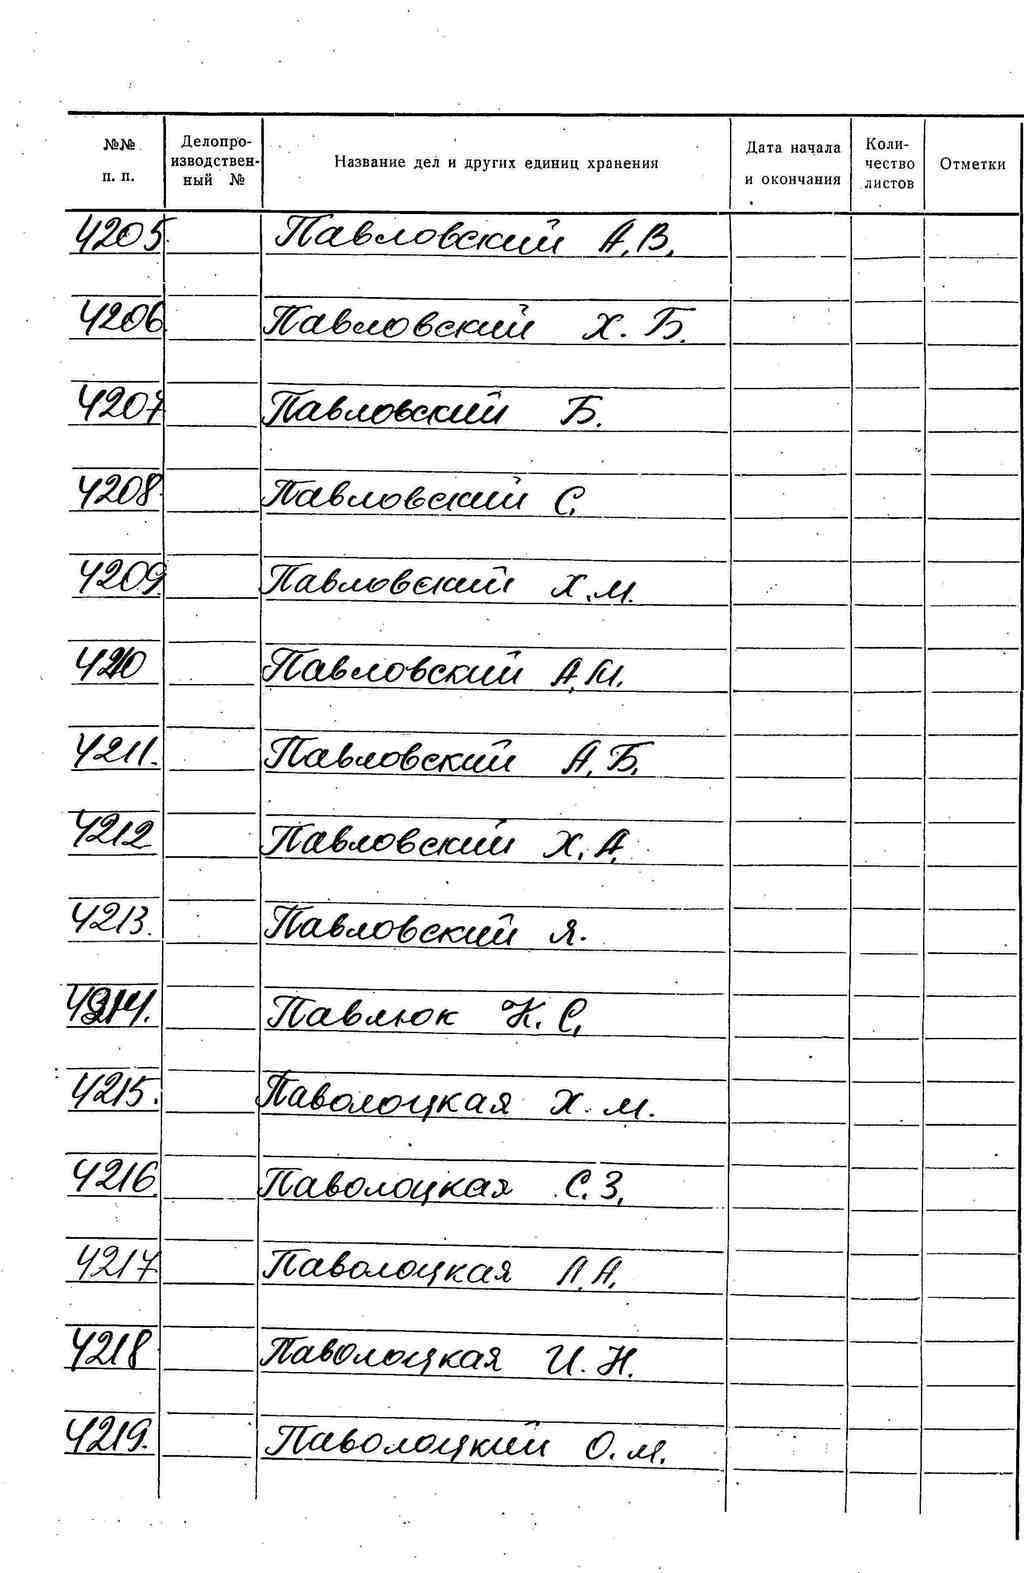 №№ п. п. Делопроизводственный № Название дел и других единиц хранения Дата начала и окончания Количество листов Отметки
4205. Павловский А.В.
4206 Павловский Х. Б.
4207 Павловский Б.
4208. Павловский С.
4209. Павловский Х.М.
4210 Павловский А.М.
4211. Павловский А.Б.
4212 Павловский Х.А.
4213. Павловский Я.
4214. Павлюк К. С.
4215. Паволоцкая Х. М.
4216. Паволоцкая С.З.
4217 Паволоцкая Л.А.
4218 Паволоцкая И. Н.
4219. Паволоцкий О. М.